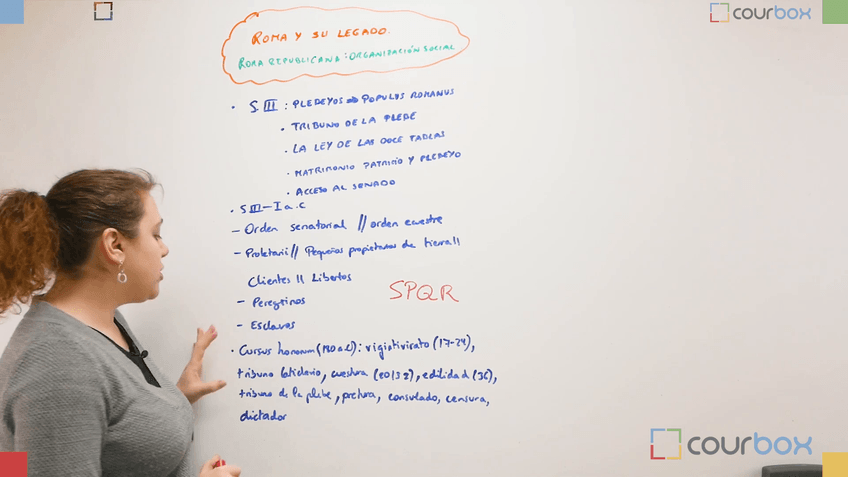 courbox
ROMA Y SU LEGADO.
ROMA REPUBLICANA: ORGANIZACIÓN SOCIAL
• S.III: PLEBEYOS => POPULUS ROMANUS
• TRIBUNO DE LA PLEBE
• LA LEY DE LAS DOCE TABLAS
• MATRIMONIO PATRICIO Y PLEBEYO
• ACCESO AL SENADO
• S III - I a.c
- Orden senatorial // orden ecuestre
- Proletarii // Pequeños propietarios de tierra //
Clientes // Libertos
SPQR
- Peregrinos
- Esclavos
• Cursus honorum (180 a.c): vigintivirato (17-24),
tribuno laticlavio, cuestura (30/32), edilidad (36),
tribuno de la plebe, pretura, consulado, censura,
dictador
courbox